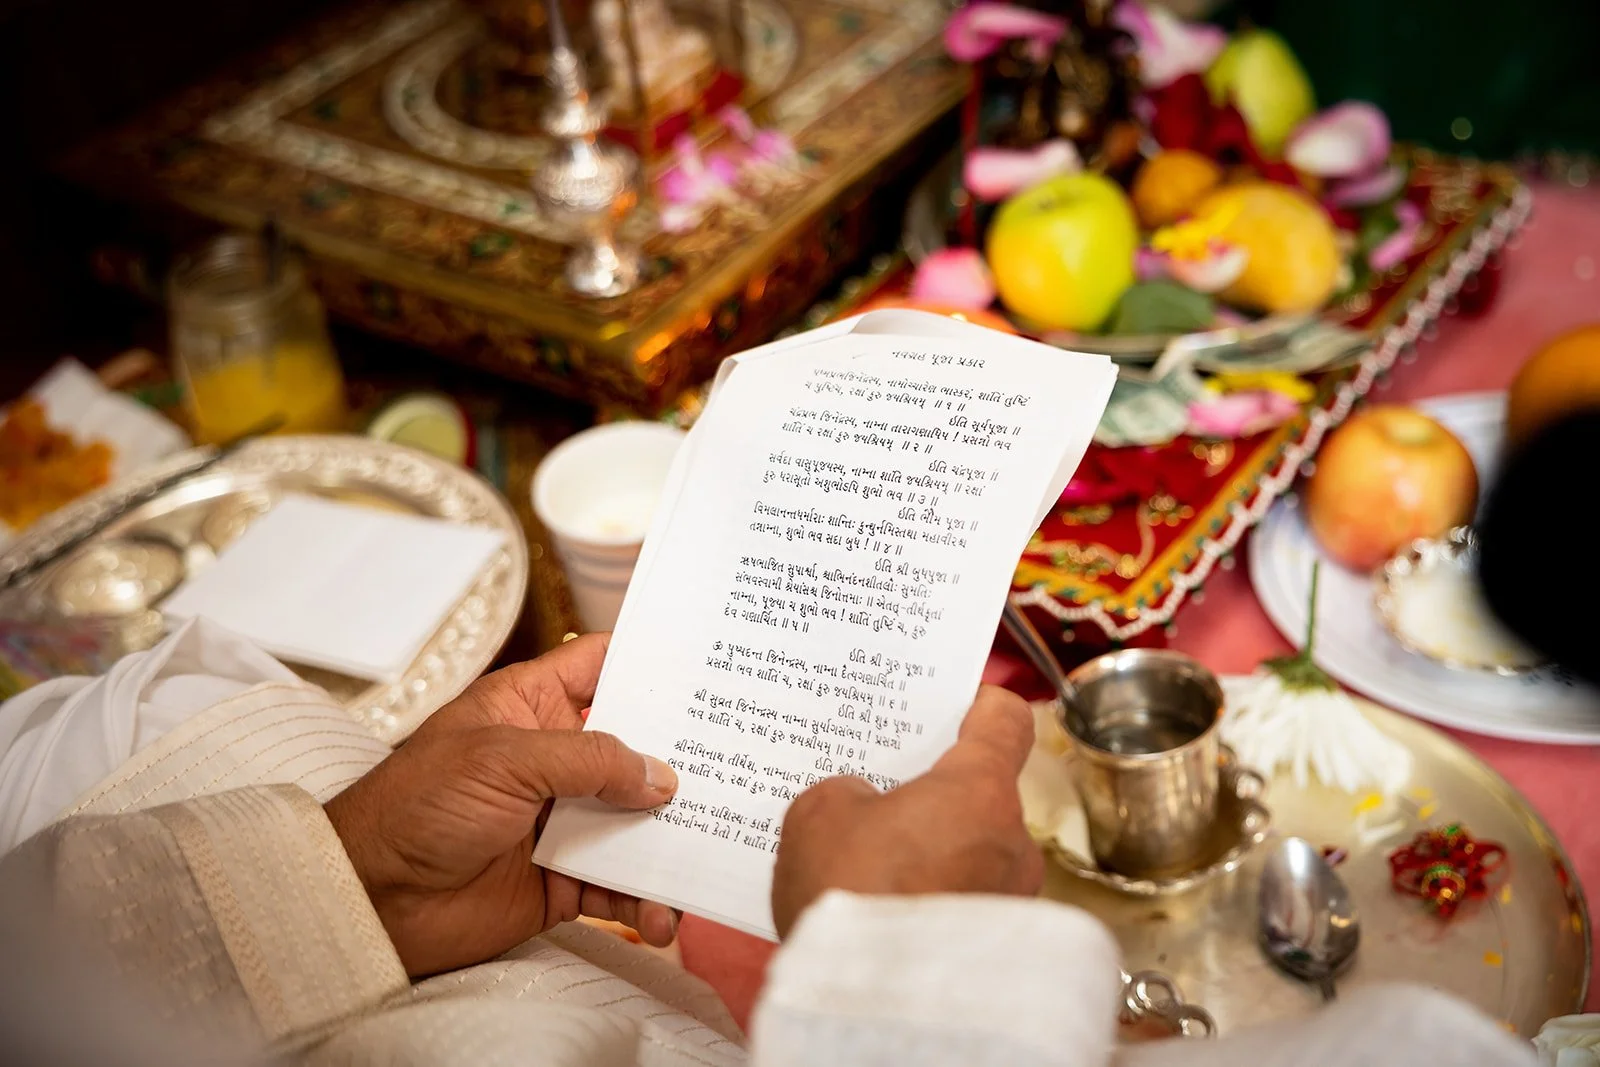 નવગ્રહ પૂજા પ્રકાર
પદ્મપ્રભજિનેંદ્રસ્ય, નામોચ્ચારેણ ભાસ્કરં, શાંતિં તુષ્ટિં
ચ પુષ્ટિંચ, રક્ષાં કુરુ જયશ્રિયમ્ ॥ ૧ ॥
ઇતિ સૂર્યપૂજા ॥
ચંદ્રપ્રભ જિનેંદ્રસ્ય, નામ્ના તારાગણાધિપ ! પ્રસન્નો ભવ
શાંતિં ચ રક્ષાં કુરુ જયશ્રિયમ્ ॥ ૨ ॥
ઇતિ ચંદ્રપૂજા ॥
સર્વદા વાસુપૂજ્યસ્ય, નામ્ના શાંતિં જયશ્રિયમ્ ॥ રક્ષાં
કુરુ ધરાસૂતો અશુભોઽપિ શુભો ભવ ॥ ૩ ॥
ઇતિ ભૌમ પૂજા ॥
વિમલાનન્તધર્મારાઃ શાન્તિઃ કુન્થુર્નમિસ્તથા મહાવીરશ્ચ
તન્નામ્ના, શુભો ભવ સદા બુધ ! ॥ ૪ ॥
ઇતિ શ્રી બુધપૂજા ॥
ઋષભાજિત સુપાર્શ્વા, શ્ચાભિનંદનશીતલૌઃ સુમતિઃ
સંભવસ્વામી શ્રેયાંસશ્ચ જિનોત્તમાઃ ॥ એતત્-તીર્થકૃતાં
નામ્ના, પૂજ્યા ચ શુભો ભવ ! શાંતિં તુષ્ટિં ચ, કુરુ
દેવ ગણાર્ચિત ॥ ૫ ॥
ઇતિ શ્રી ગુરુ પૂજા ॥
ૐ પુષ્પદન્ત જિનેન્દ્રસ્ય, નામ્ના દૈત્યગણાર્ચિત ॥
પ્રસન્નો ભવ શાંતિં ચ, રક્ષાં કુરુ જયશ્રિયમ્ ॥ ૬ ॥
ઇતિ શ્રી શુક્ર પૂજા ॥
શ્રી સુવ્રત જિનેન્દ્રસ્ય નામ્ના સુર્યાગસંભવ ! પ્રસન્નો
ભવ શાંતિં ચ, રક્ષાં કુરુ જયશ્રીયમ્ ॥ ૭ ॥
ઇતિ શ્રીશનૈશ્ચરપૂજા
શ્રીનેમિનાથ તીર્થેશ, નામ્નાત્વં
ભવ શાંતિં ચ, રક્ષાં કુરુ જશ્રિય
સપ્તમ રાશિસ્થઃ કાર્ણે
કેતો ! શાંતિં